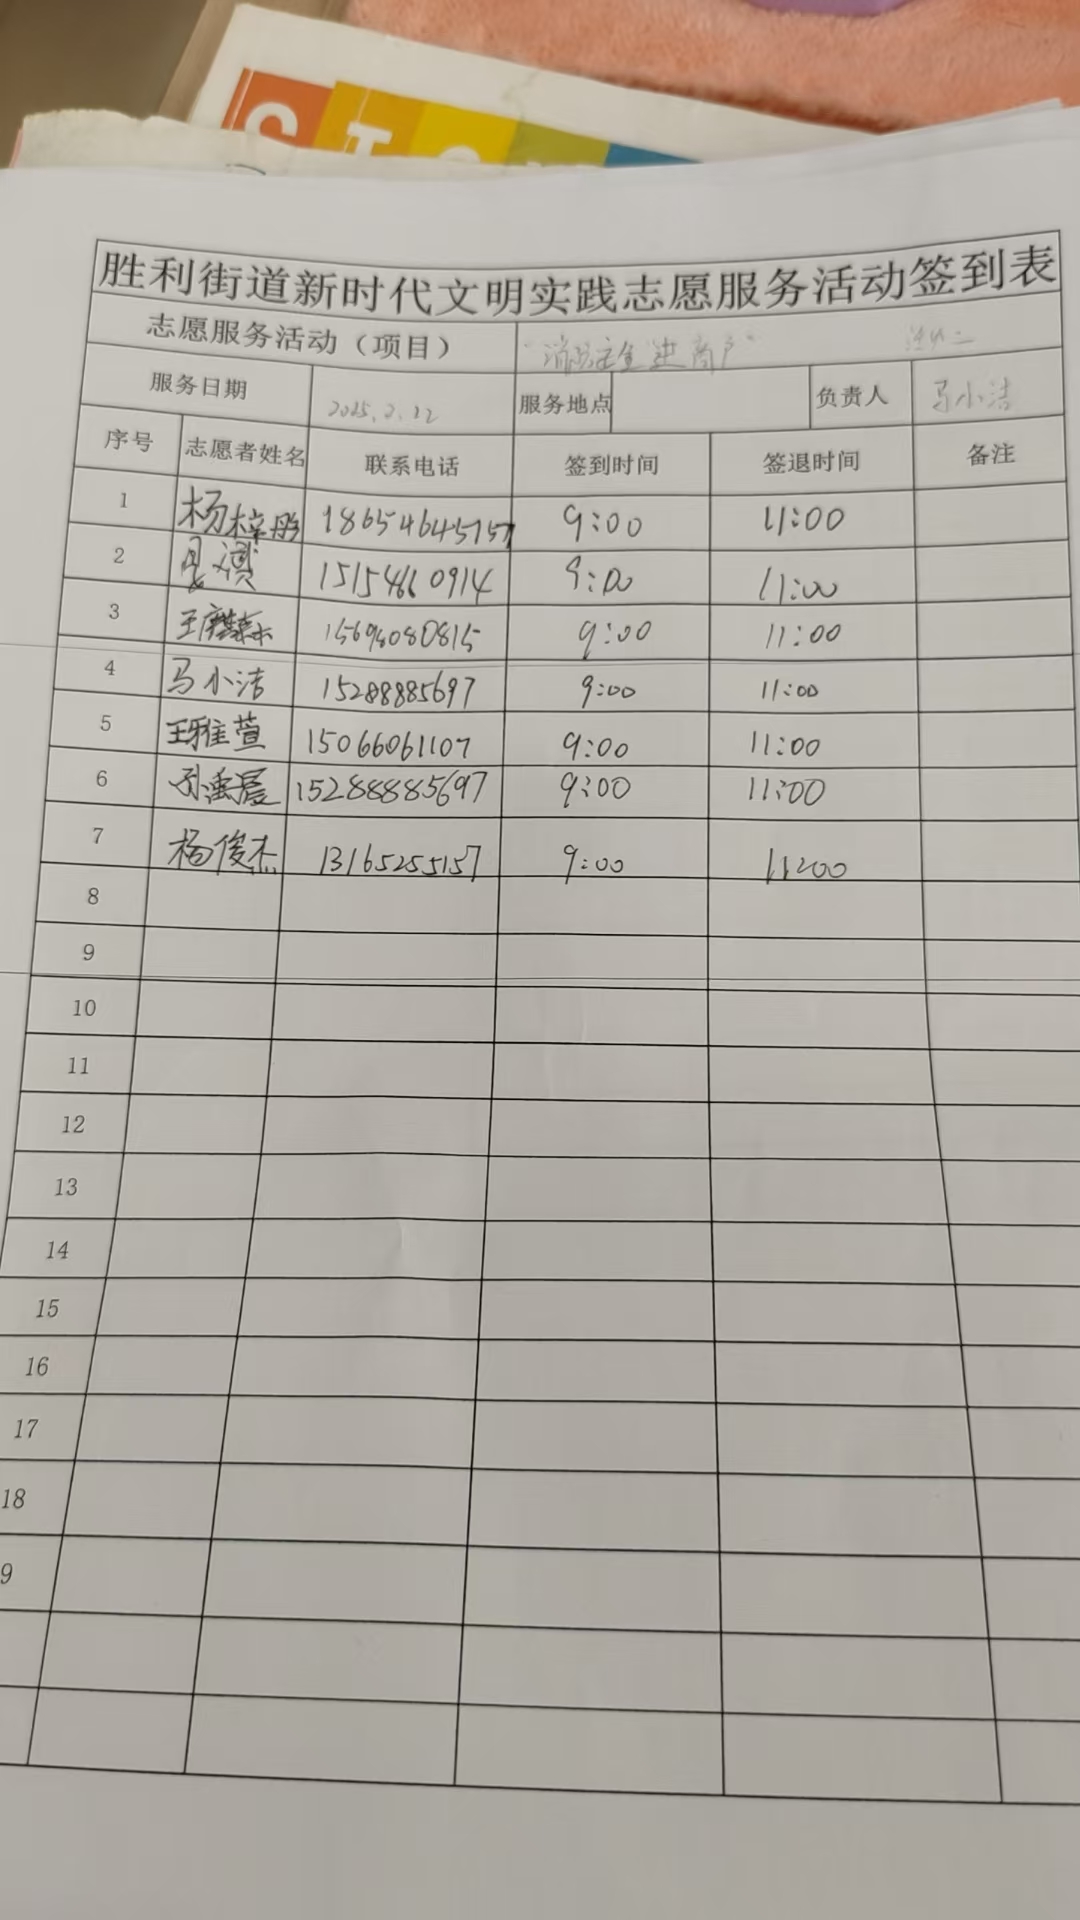 胜利街道新时代文明实践志愿服务活动签到表
志愿服务活动（项目） "消防安全进商户"
服务日期 2025.2.22 服务地点 负责人 马小洁
序号 志愿者姓名 联系电话 签到时间 签退时间 备注
1 杨梓彤 18654645757 9:00 11:00
2 15154610914 9:00 11:00
3 王 15694080815 9:00 11:00
4 马小洁 15288885697 9:00 11:00
5 王雅萱 15066061107 9:00 11:00
6 孙 15288885697 9:00 11:00
7 杨俊杰 13165255157 9:00 11:00
8
9
10
11
12
13
14
15
16
17
18
9